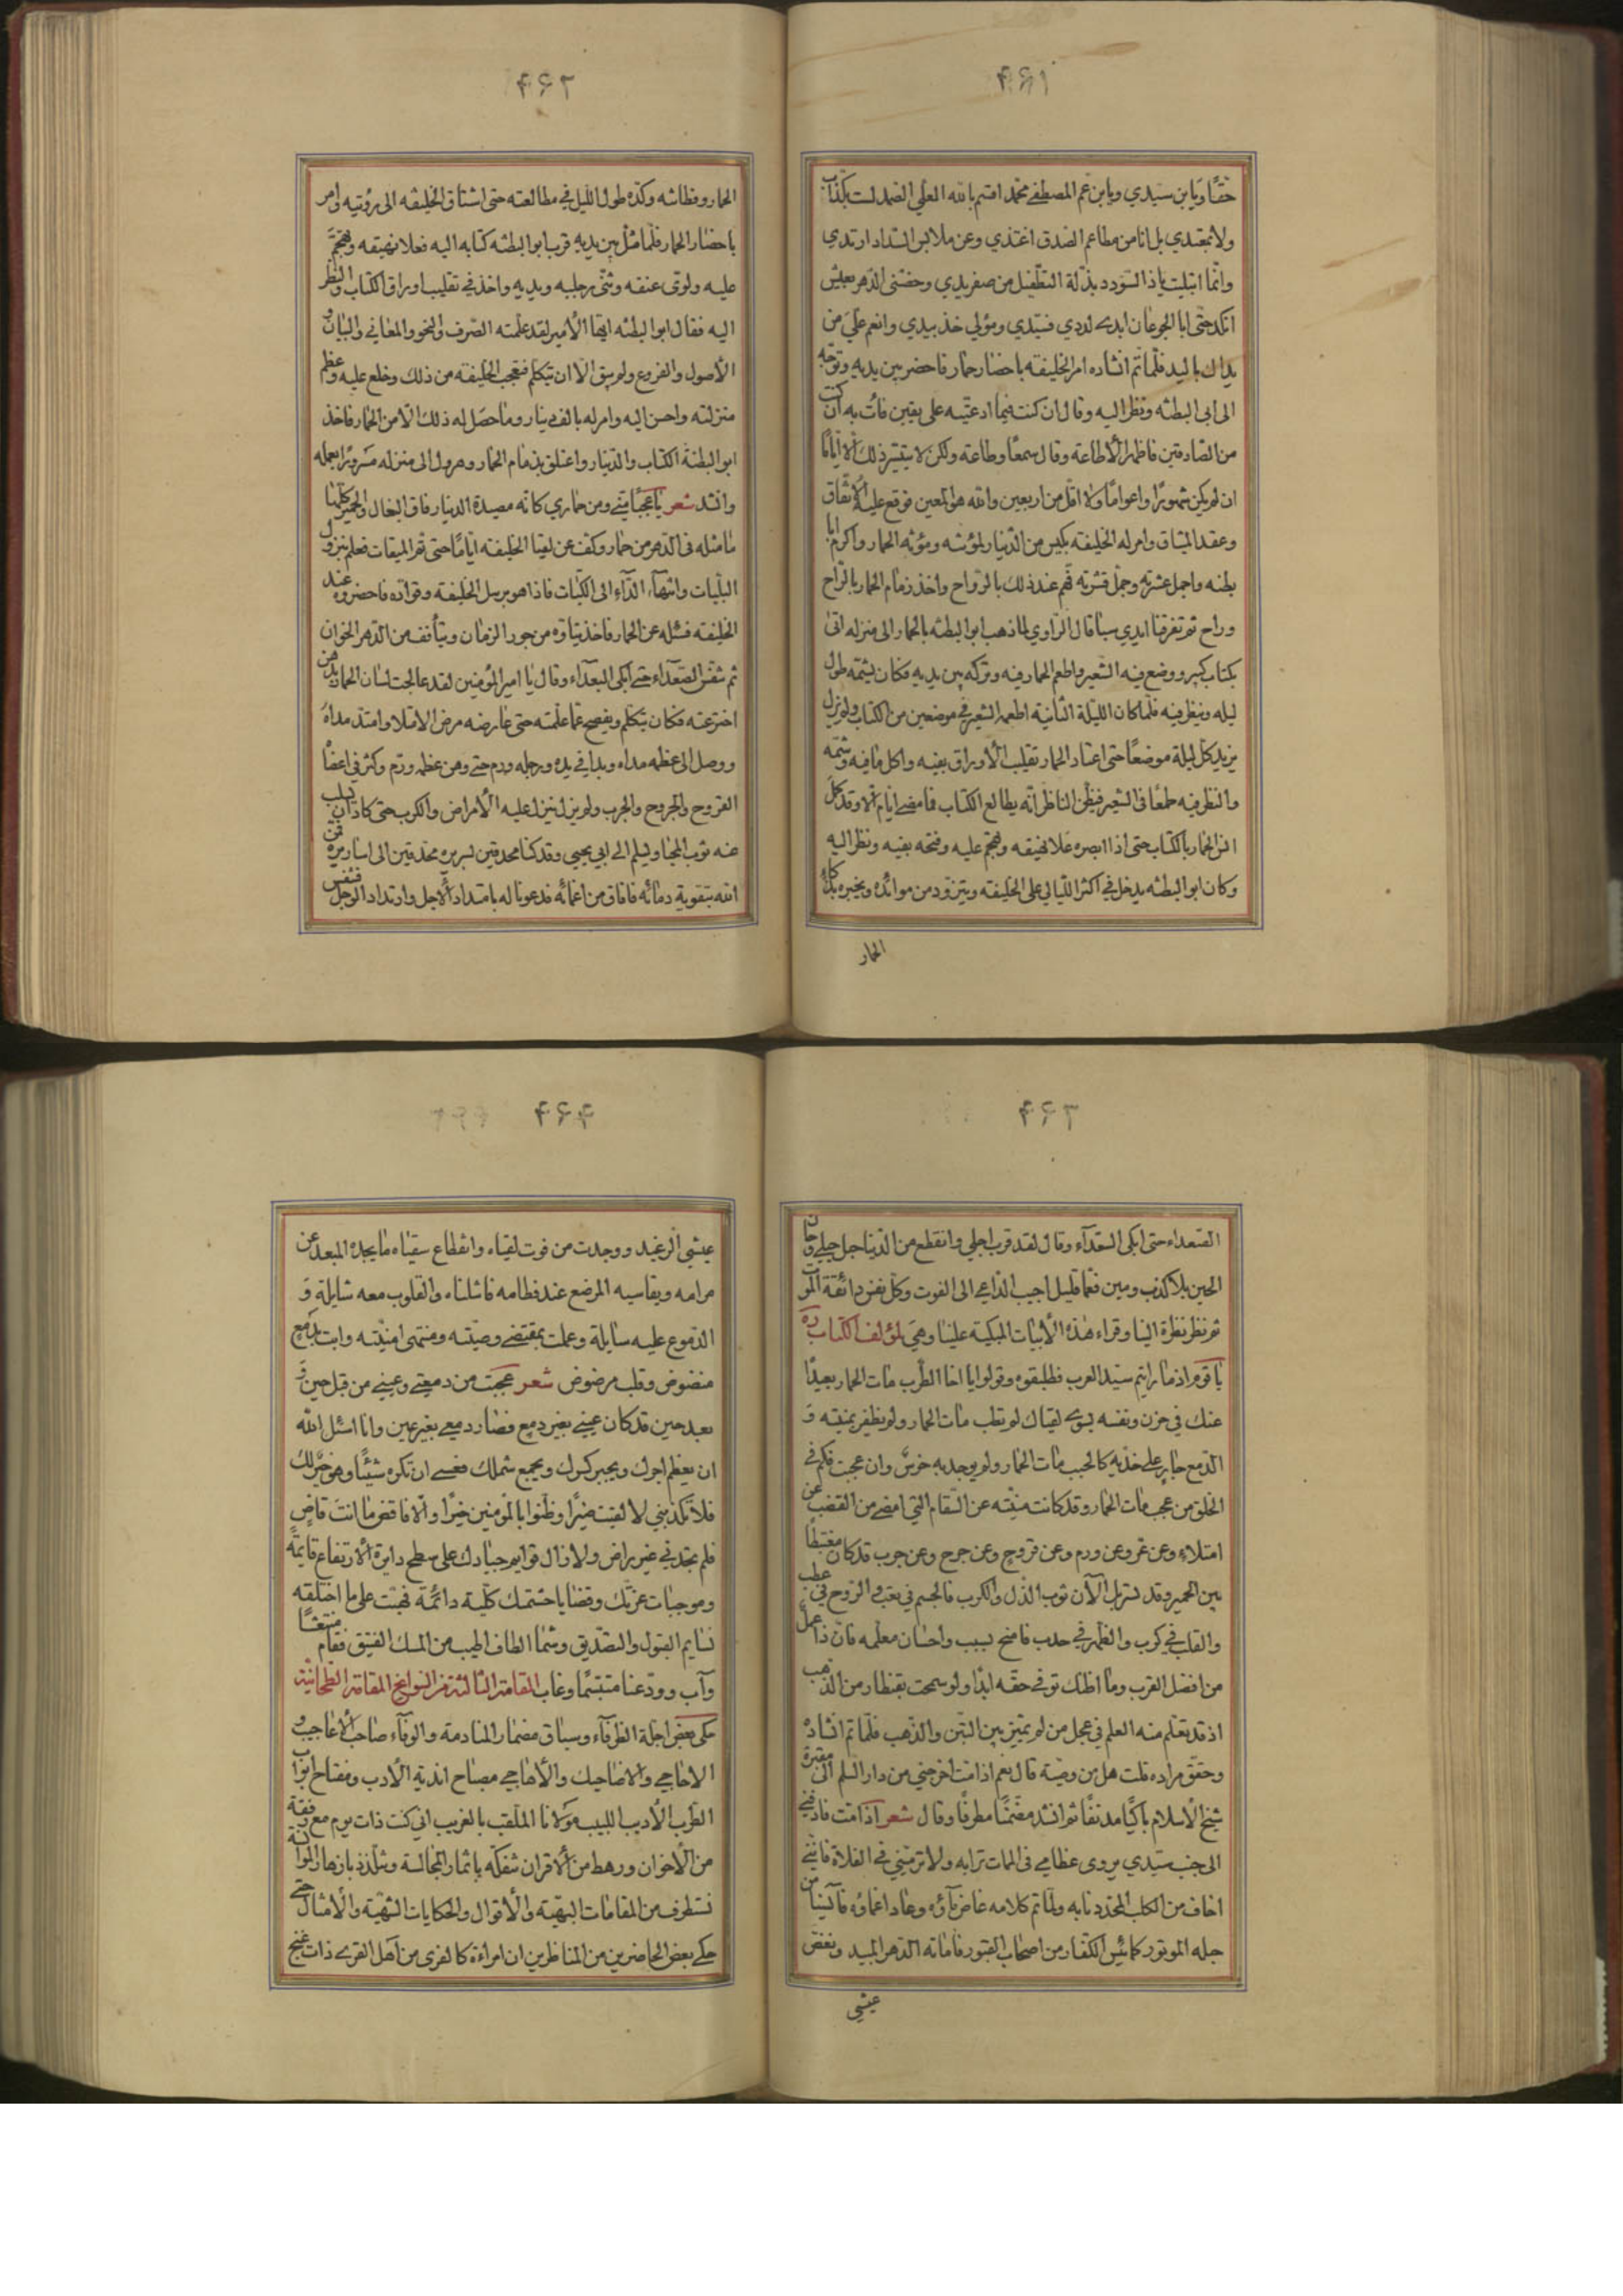 ۴۶۱
حقًا ويا بن سيدي ويا بن عم المصطفى محمد اقسم بالله العلي الصمد لست بكذاب
ولا بمعتدي بل انا من مطاعم الصدق اغتذي وعن ملابس السداد ارتدي
وانما ابتليت يا ذا السودد بذلة التطفيل من صفر يدي وخصني الدهر بعيش
انكد حتى ابا الجوعان ابدى لددي فسيدي ومؤلي خذ بيدي وانعم علي من
يداك باليد فلما تم انشاده امر الخليفه باحضار حمار فاحضر بين يديه وتوجه
الى ابى البطنه ونظر اليه وقال ان كنت فيما ادعيته على يقين فأت به ان كنت
من الصادقين فاظهر الاطاعة وقال سمعًا وطاعة ولكن لا يتيسر ذلك الا ايامًا
ان لم يكن شهورًا واعوامًا ولا اقل من اربعين والله هو المعين فوقع عليه الاتفاق
وعقد الميثاق وامر له الخليفه بكيس من الدنيار لمؤنته ومؤنه الحمار واكرم ابا
بطنه واجمل عشرته وجمل قشرته فهم عند ذلك بالرواح واخذ زمام الحمار بالراح
وراح ثم تفرقنا ايدي سبا قال الراوي لما ذهب ابو البطنه بالحمار الى منزله اتى
بكتاب كبير ووضع فيه الشعير واطعم الحمار فيه وتركه بين يديه فكان يشمه طول
ليله وينظر فيه فلما كان الليلة الثانية اطعمه الشعير في موضعين من الكتاب ولم يزل
يزيد كل ليلة موضعًا حتى اعتاد الحمار تقليب الاوراق بفيه واكل ما فيه وشمه
والنظر فيه طمعًا فى الشعير فيظن الناظر انه يطالع الكتاب فما مضى ايام الا وقد كمل
انس الحمار بالكتاب حتى اذا ابصره علا نهيقه وهجم عليه وفتحه بفيه ونظر اليه
وكان ابو البطنه يدخل في اكثر الليالي على الخليفه ويتزود من موائده ويخبره بذكاء
الحمار
۴۶۲
الحمار وفطانته وكده طول الليل في مطالعته حتى اشتاق الخليفه الى رؤيته وامر
باحضار الحمار فلما مثل بين يديه قرب ابو البطنه كتابه اليه فعلا نهيقه وهجم
عليه ولوى عنقه وثنى رجليه ويديه واخذ في تقليب اوراق الكتاب والنظر
اليه فقال ابو البطنه ايها الامير لقد علمته الصرف والنحو والمعاني والبيان و
الاصول والفروع ولم يبق الا ان يتكلم فتعجب الخليفه من ذلك وخلع عليه وعظم
منزلته واحسن اليه وامر له بالف دينار وما حصل له ذلك الا من الحمار فاخذ
ابو البطنة الكتاب والدينار واعتلق بزمام الحمار وهرول الى منزله مسرورًا بعمله
وانشد شعر يا عجبًا مني ومن حماري كانه مصيدة الدينار فاق البغال والحمير كلها
ما مثله فى الدهر من حمار وكف عن لقيا الخليفه ايامًا حتى تم الميقات فعلم بنزول
البليات وانتهاء الداء الى الكيات فاذا هو برسل الخليفة وقواده فاحضروه عند
الخليفه فسئله عن الحمار فاخذ يتاوه من جور الزمان ويتأفف من الدهر الخوان
ثم تنفس الصعداء حتى ابكى البعداء وقال يا امير المؤمنين لقد عالجت لسان الحمار بدهن
اخترعته فكان يتكلم ويفصح عما علمته حتى عارضه مرض الامتلا وامتد مداه
ووصل الى عظمه مداه وبدا في يده ورجله ورم حتى وهن عظمه ورم وكثر في اعضا
القروح والجروح والجرب ولم يزل ينزل عليه الامراض والكرب حتى كاد ان يسلب
عنه ثوب المحيا ويسلم الى ابي يحيى وقد كنا محدقين بسريره محدقين الى اساريره فمن
الله بتقوية دمائه فافاق من اغمائه فدعونا له بامتداد الاجل وارتداد الوجل فتنفس
۴۶۳
الصعداء حتى ابكى السعداء وقال لقد قرب اجلي وانقطع من الدنيا جل حبلي وحان
الحين بلا كذب ومين فعما قليل اجيب الداعي الى الفوت وكل نفس دائقة الموت
ثم نظر نظرة الينا وقراء هذه الابيات المبكية علينا وهي لمؤلف الكتاب ره
يا قوم اذ ما رايتم سيد العرب فطلبقوه وقولوا يا اخا الطرب مات الحمار بعيدًا
عنك في حزن ونفسه بسوى لقياك لم تطب مات الحمار ولم يظفر بمنيته و
الدمع جار على خذيه كالحبب مات الحمار ولم يوجد به خرس وان عجبت فكم في
الخلق من عجب مات الحمار وقد كانت منيته عن السقام التي امضى من القضب عن
امتلاء وعن غر وعن ورم وعن قروح وعن جرح وعن جرب قد كان مغتبطًا
بين الحمير وقد سربل الآن ثوب الذل والكرب فالجسم في تعب والروح في عطب
والقلب في كرب والظهر في حدب فامنح لبيب واحسان معلمه فان ذا عمل
من افضل القرب وما اظنك توفي حقه ابدًا ولو سمحت بقنطار من الذهب
اذ قد تعلم منه العلم في عجل من لم يميز بين التبن والذهب فلما تم انشاده
وحقق مراده قلت هل من وصية قال نعم اذا مت اخرجني من دار السلم الى مقبرة
شيخ الاسلام باكيًا مدنفًا ثم انشد مضمنًا مطرفًا وقال شعر اذا مت فادفني
الى جنب سيدي يروى عظامي فى الممات ترابه ولا ترمني في الفلاة فانني
اخاف من الكلب المحدد نابه ولما تم كلامه غاض ماؤه وعاد اغماؤه فآيسنا من
حيله الموتور كما يئس الكفار من اصحاب القبور فاماته الدهر المبيد ونغص
عيشي
۴۶۴
عيشي الرغيد ووجدت من فوت لقياه وانقطاع سقياه ما يجده المبعد عن
مرامه ويقاسيه المرضع عند فطامه فاشلناه والقلوب معه شايلة و
الدموع عليه سايلة وعملت بمقتضى وصيته ومنتهى امنيته وابت بدمع
منضوض وقلب مرضوض شعر عجبت من دمعتي وعيني من قبل حين و
بعد حين قد كان عيني بغير دمع فصار دمعي بغير عين وانا اسئل الله
ان يعظم اجرك ويجبر كسرك ويجمع شملك فعسى ان تكره شيئًا وهو خير لك
فلا تكذبني لا لقيت ضيرًا وظنوا بالمؤمنين خيرًا والا فاقض ما انت قاض
فلم تجدني غير راض ولا زال قوايم جيادك على سطح دايرة الارتفاع قايمة
وموجبات عزتك وقضايا حشمتك كلية دائمة فهبت على ما اختلقه
نسايم القبول والتصديق وشما الطاف اطيب من المسك الفتيق فقام منتعشًا
وآب وودعنا متبسمًا وغاب المقامة الثالثة من النوابغ المقامة الطحانية
حكى بعض اجلة الظرفاء وسباق مضمار المنادمة والوفاء صاحب الاعاجيب و
الاحاجي والاضاحيك والاهاجي مصباح اندية الادب ومفتاح ابواب
الطرب الاديب اللبيب مولانا الملقب بالغريب اني كنت ذات يوم مع رفقة
من الاخوان ورهط من الاقران نتفكه باثمار المجالسة ونتلذذ بازهار الموانسة
نستطرف من المقامات البهية والاقوال والحكايات الشهية والامثال حتى
حكى بعض الحاضرين من المناظرين ان امراءة كالغزى من اهل القرى ذات غنج